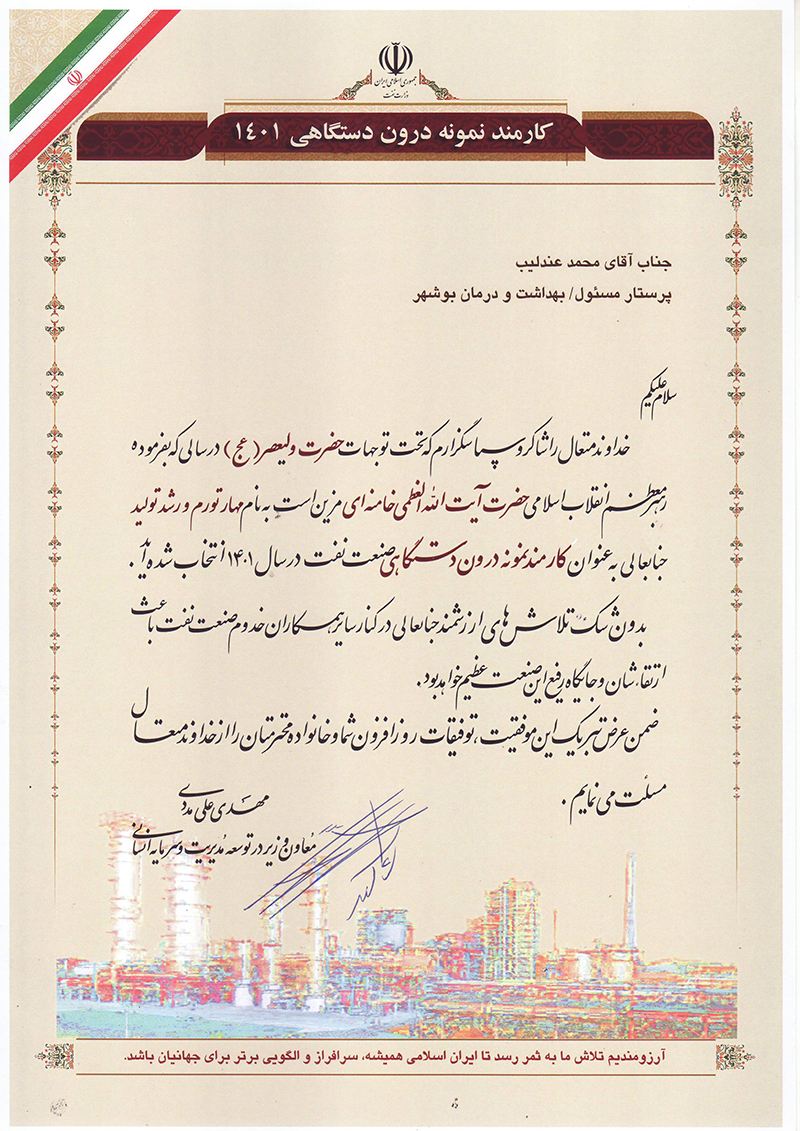 جمهوری اسلامی ایران
وزارت نفت
کارمند نمونه درون دستگاهی ۱٤۰۱
جناب آقای محمد عندلیب
پرستار مسئول/ بهداشت و درمان بوشهر
سلام علیکم
خداوند متعال را شاکر و سپاسگزارم که تحت توجهات حضرت ولیعصر (عج) در سالی که بفرموده
رهبر معظم انقلاب اسلامی حضرت آیت الله العظمی خامنه ای مزین است به نام مهار تورم و رشد تولید
جنابعالی به عنوان کارمند نمونه درون دستگاهی صنعت نفت در سال ۱۴۰۱ انتخاب شده اید.
بدون شک تلاش های ارزشمند جنابعالی در کنار سایر همکاران خدوم صنعت نفت باعث
ارتقاء شان و جایگاه رفیع این صنعت عظیم خواهد بود.
ضمن عرض تبریک این موفقیت، توفیقات روزافزون شما و خانواده محترمتان را از خداوند متعال
مسئلت می نمایم.
مهدی علی مددی
معاون وزیر در توسعه مدیریت و سرمایه انسانی
آرزومندیم تلاش ما به ثمر رسد تا ایران اسلامی همیشه، سرافراز و الگویی برتر برای جهانیان باشد.